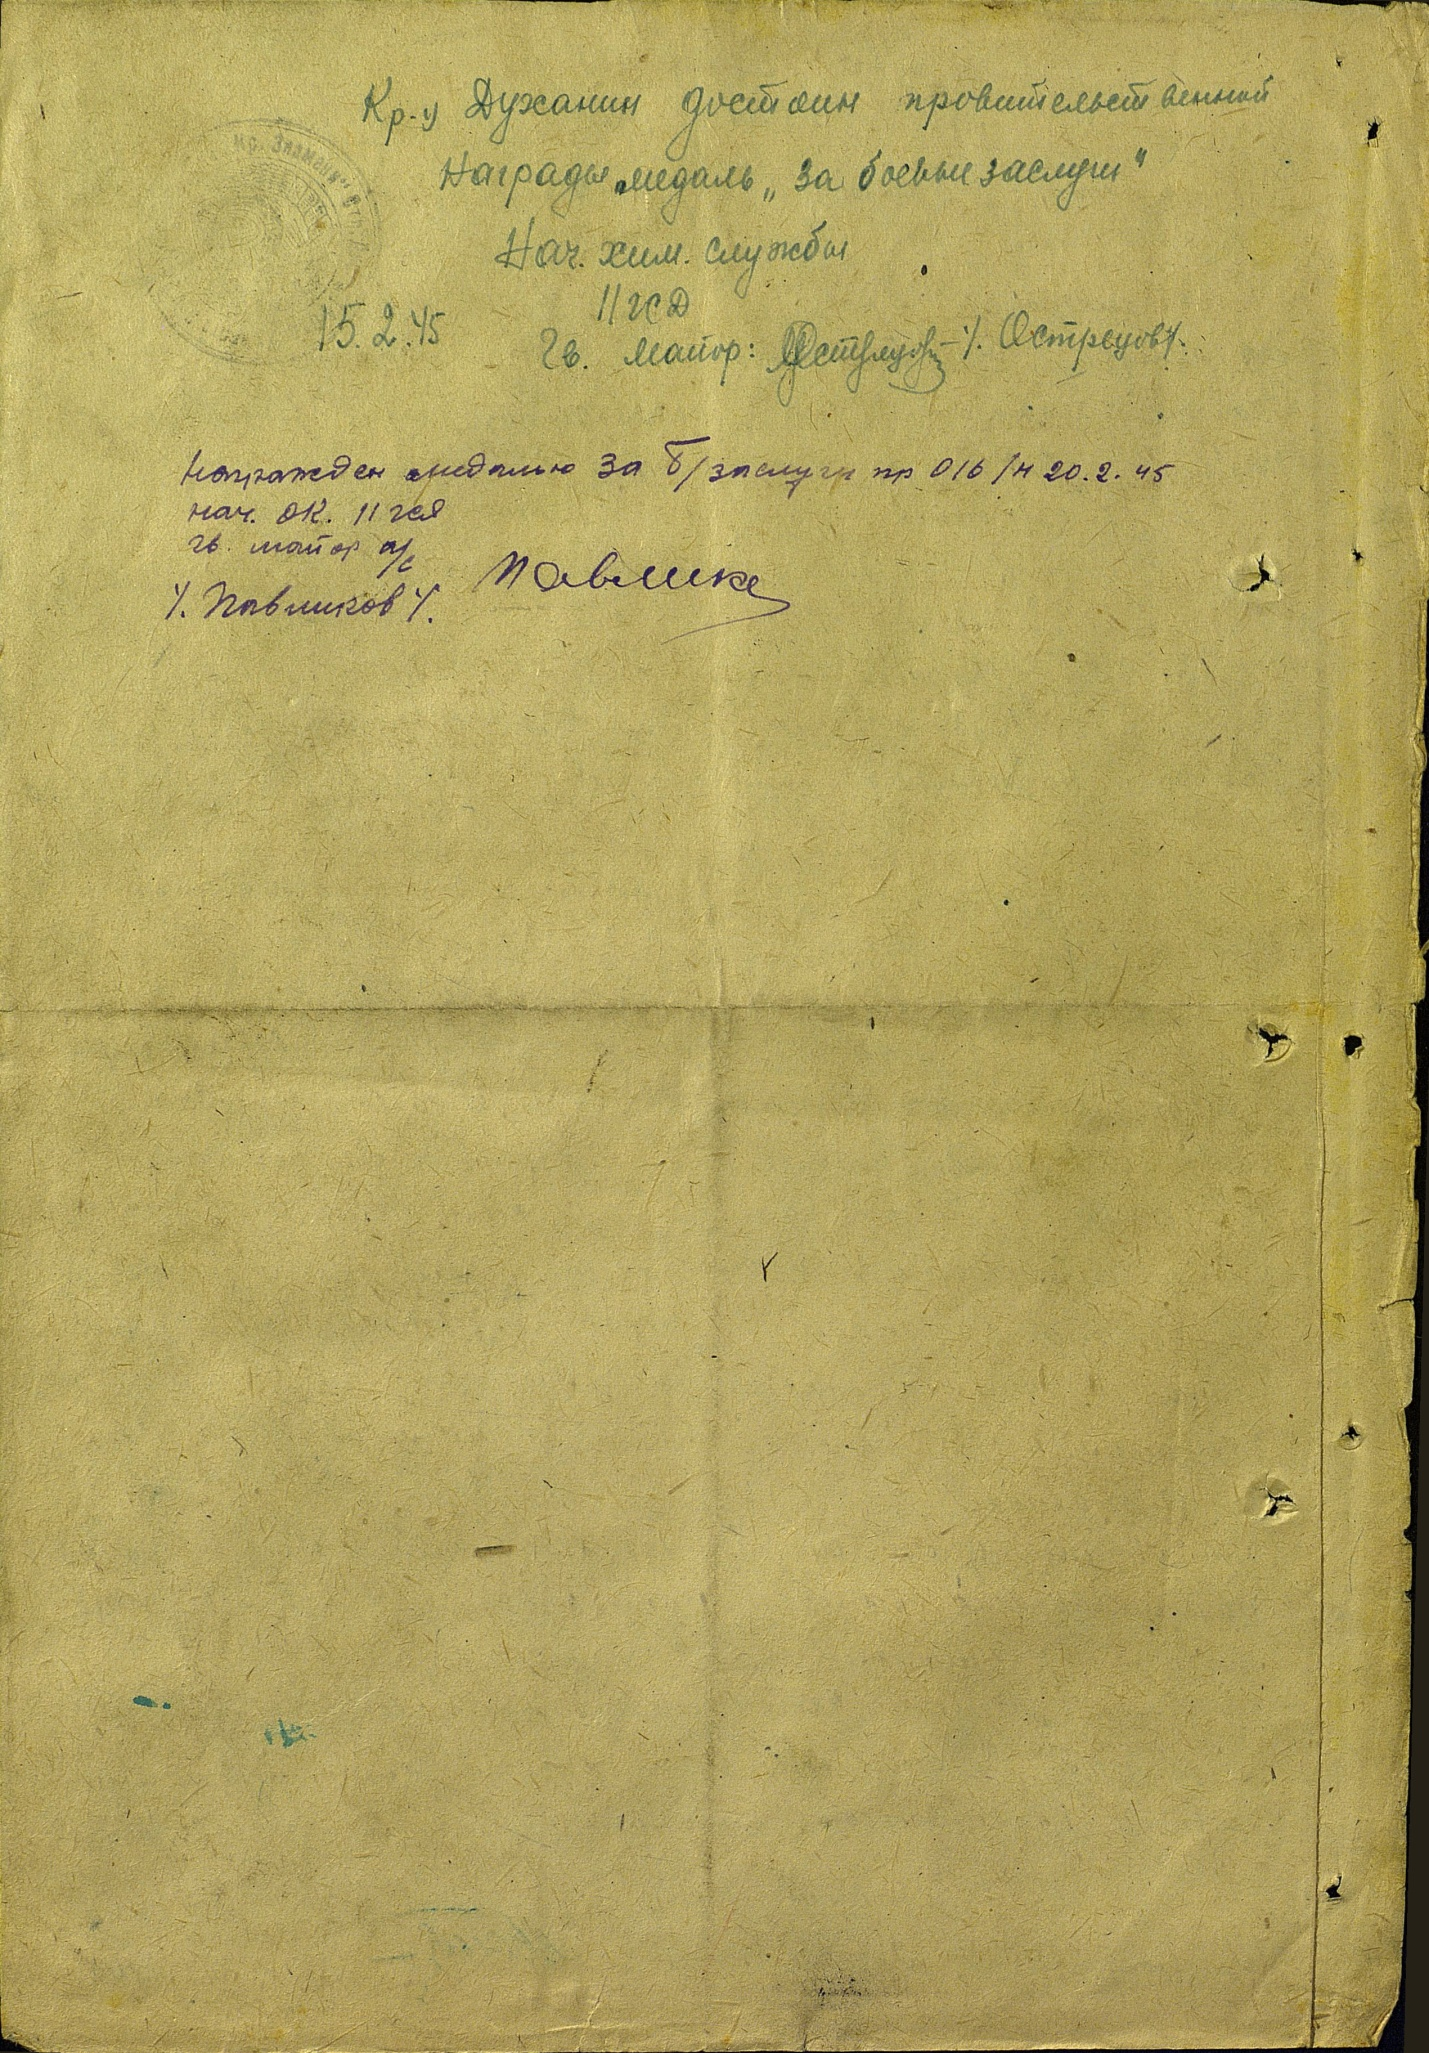 Кр-ц Духанин достоин провительственной
Награды медаль „За боевые заслуги"
Нач. хим. службы
11 гсд
15.2.45
Гв. Майор: /. Острецов /.
Награжден медалью За б/заслуги пр 016/н 20.2.45
нач. ОК. 11 гсд
гв. майор а/с
/. Павликов /.
Кр. Знамени